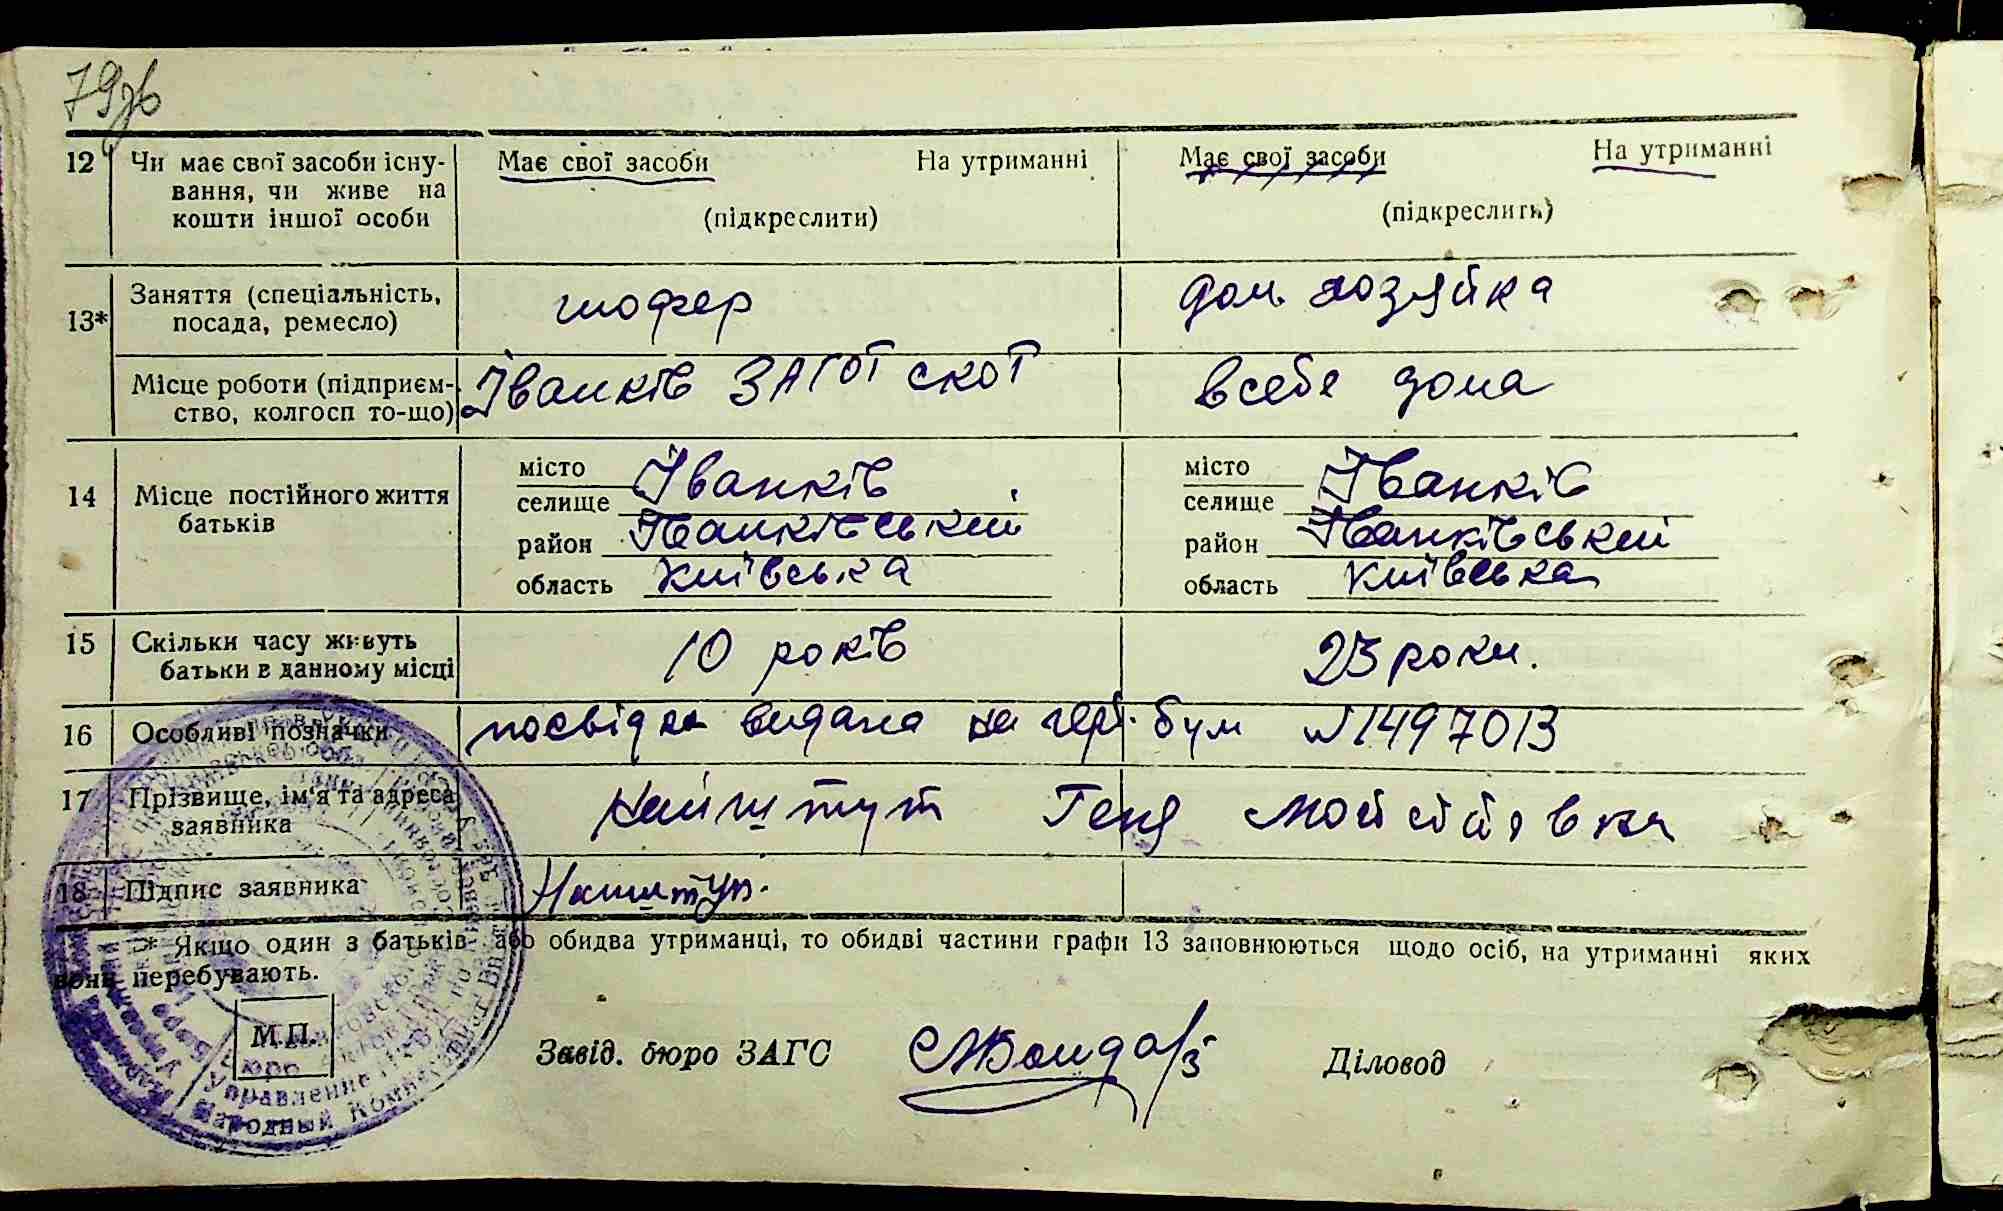 79зв
12 Чи має свої засоби існу-
вання, чи живе на
кошти іншої особи
Має свої засоби На утриманні
(підкреслити)
Має свої засоби На утриманні
(підкреслить)
13* Заняття (спеціальність,
посада, ремесло)
шофер
дом хозяйка
Місце роботи (підприєм-
ство, колгосп то-що)
Іванків ЗАГОТ скот
в себе дома
14 Місце постійного життя
батьків
місто
селище Іванків
район Іванківський
область Київська
місто
селище Іванків
район Іванківський
область Київська
15 Скільки часу живуть
батьки в данному місці
10 років
23 роки.
16 Особливі позначки
посвідка видана на герб. бум №1497013
17 Прізвище, ім'я та адреса
заявника
Гепя Мойсіївна
18 Підпис заявника
* Якщо один з батьків або обидва утриманці, то обидві частини графи 13 заповнюються щодо осіб, на утриманні яких
вони перебувають.
М.П.
Завід. бюро ЗАГС
Діловод
Народный Комис